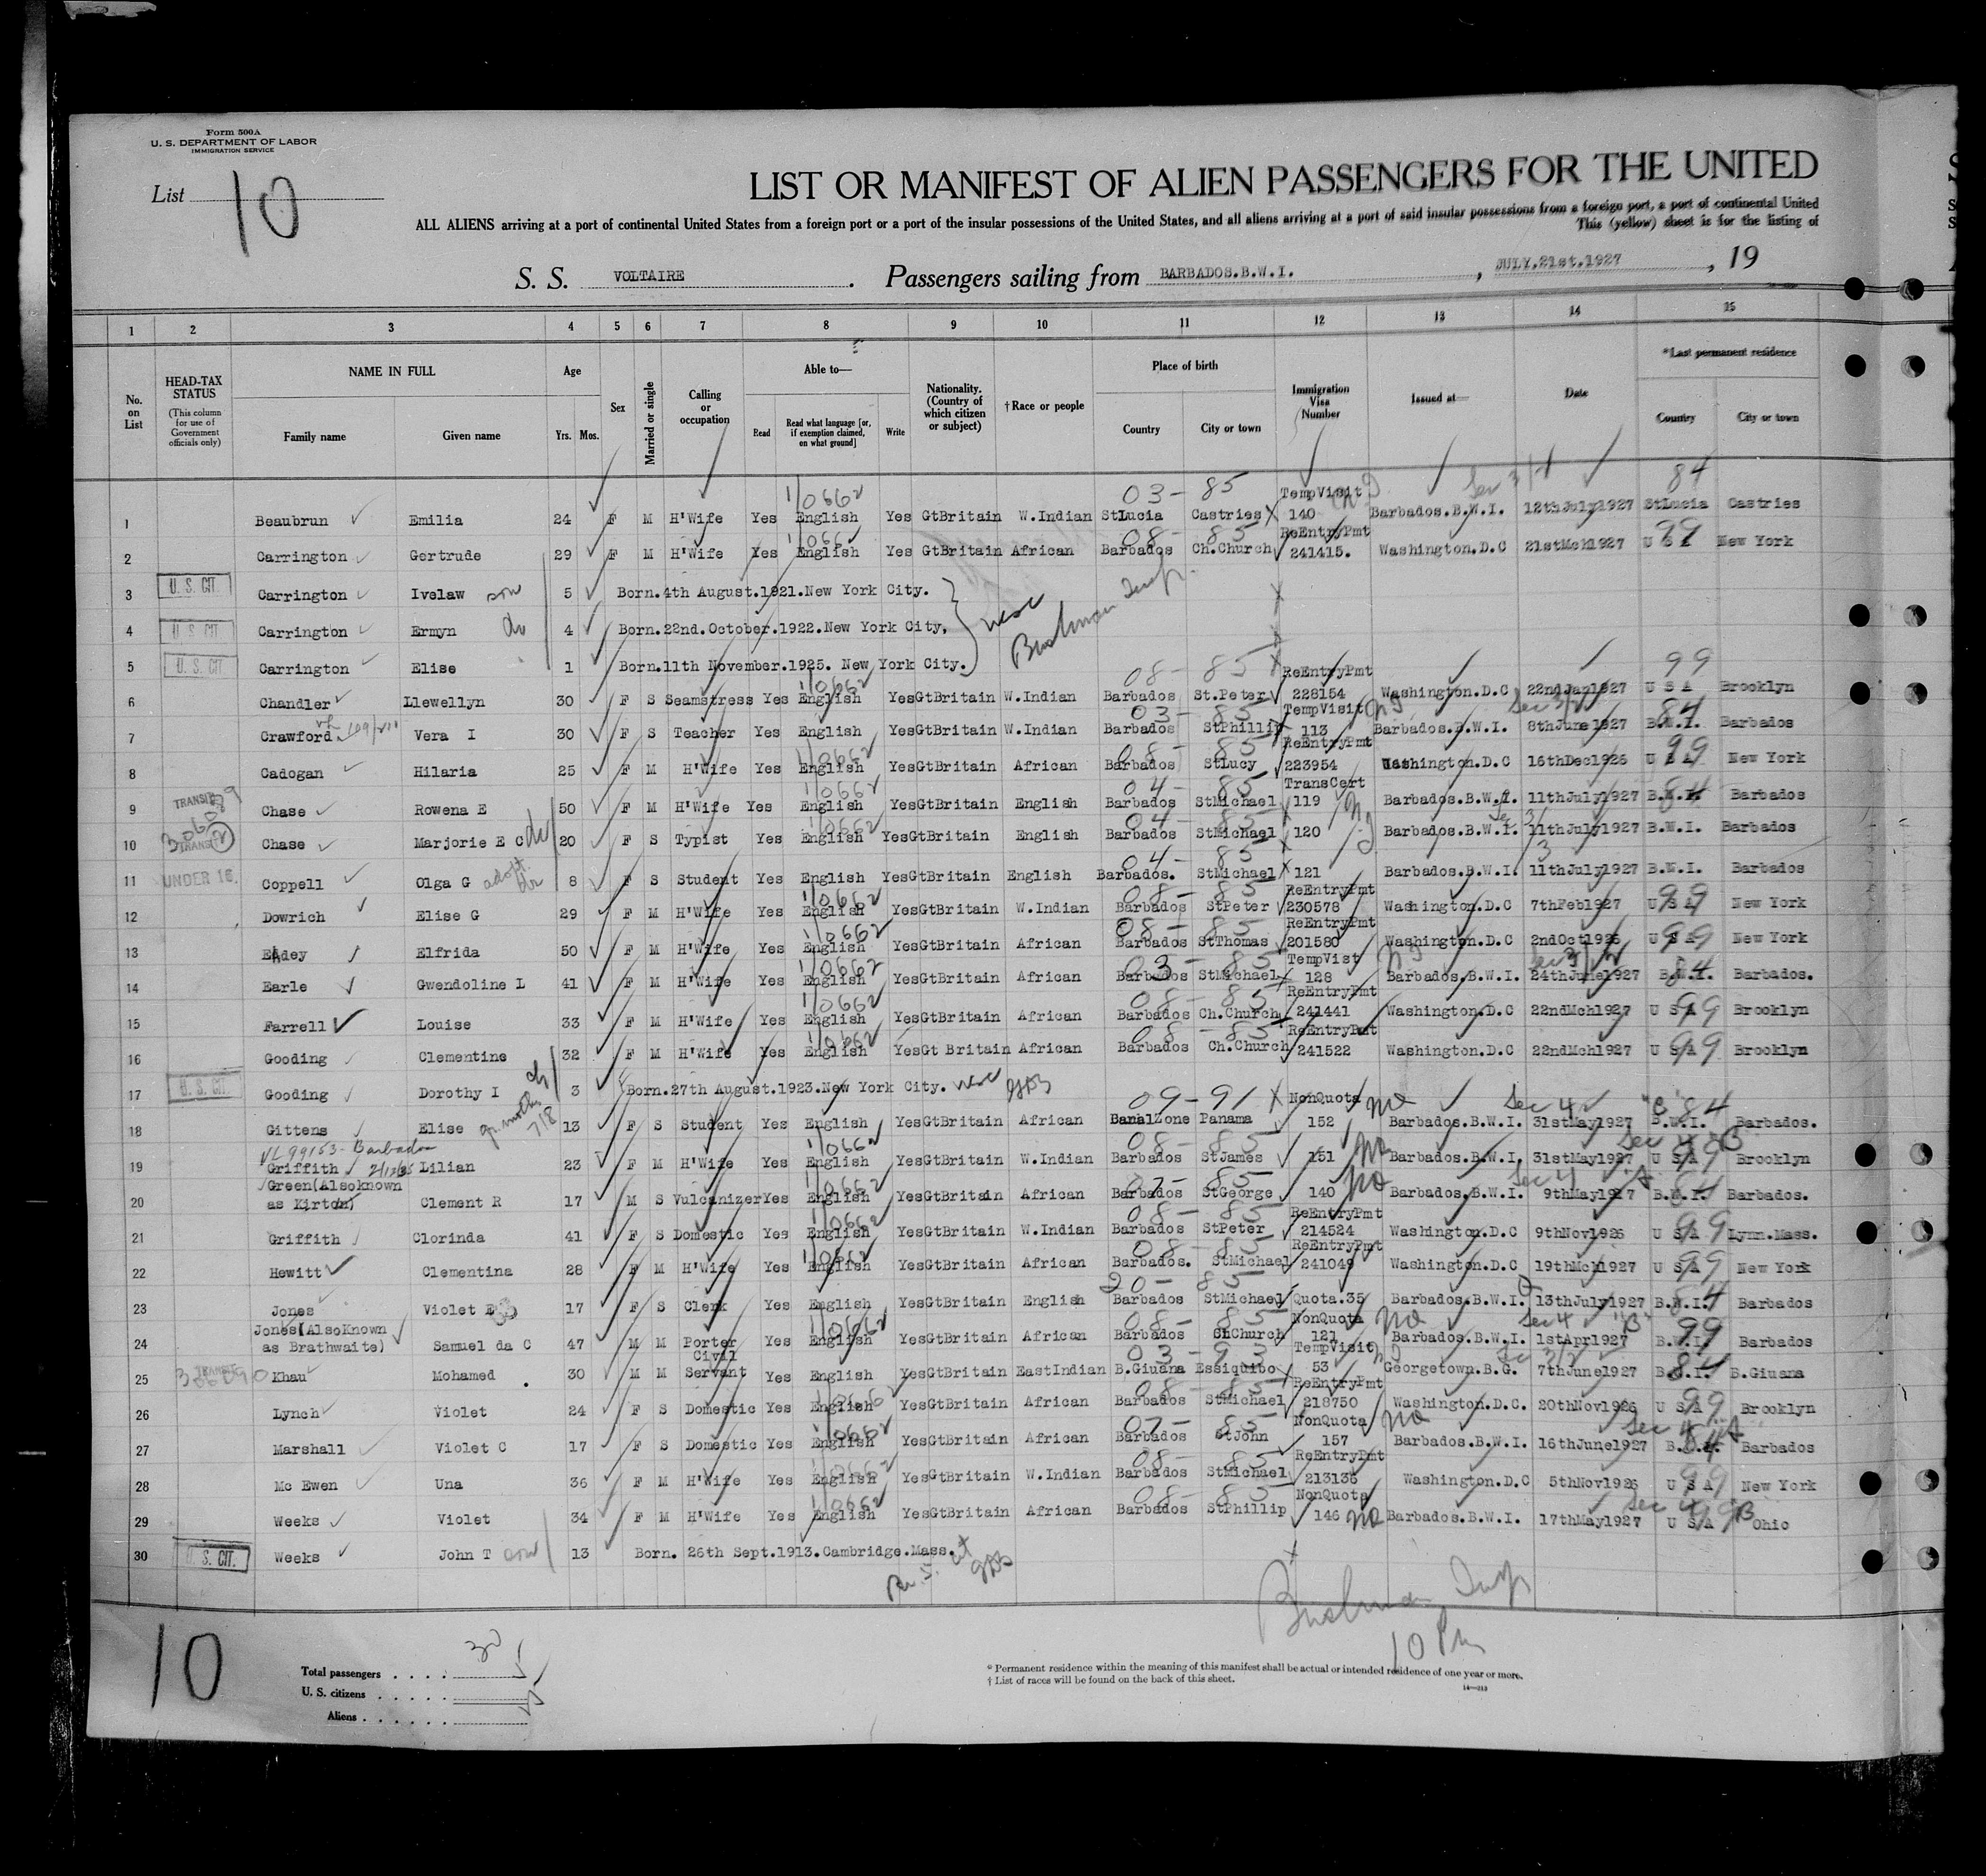 Form 500A
U. S. DEPARTMENT OF LABOR
IMMIGRATION SERVICE
List 10
LIST OR MANIFEST OF ALIEN PASSENGERS FOR THE UNITED
ALL ALIENS arriving at a port of continental United States from a foreign port or a port of the insular possessions of the United States, and all aliens arriving at a port of said insular possessions from a foreign port, a port of continental United
This (yellow) sheet is for the listing of
S. S. VOLTAIRE. Passengers sailing from BARBADOS.B.W.I., JULY.21st.1927, 19
1 2 3 4 5 6 7 8 9 10 11 12 13 14 15
No. on List
HEAD-TAX STATUS
(This column for use of Government officials only)
NAME IN FULL
Family name
Given name
Age
Yrs. Mos.
Sex
Married or single
Calling or occupation
Able to—
Read
Read what language [or, if exemption claimed, on what ground]
Write
Nationality. (Country of which citizen or subject)
†Race or people
Place of birth
Country
City or town
Immigration Visa Number
Issued at—
Date
*Last permanent residence
Country
City or town
03- 85 TempVisit 84
1 Beaubrun Emilia 24 F M H'Wife Yes English Yes GtBritain W.Indian StLucia Castries 140 Barbados.B.W.I. 12thJuly1927 StLucia Castries
08- 85 ReEntryPmt 99
2 Carrington Gertrude 29 F M H'Wife Yes English Yes GtBritain African Barbados Ch.Church 241415. Washington.D.C 21stMch1927 U S A New York
3 U. S. CIT Carrington Ivelaw son 5 Born.4th August.1921.New York City.
4 U. S. CIT Carrington Ermyn 4 Born.22nd.October.1922.New York City,
Bushman Insp.
5 U. S. CIT Carrington Elise 1 Born.11th November.1925. New York City.
08- 85 ReEntryPmt 99
6 Chandler Llewellyn 30 F S Seamstress Yes English YesGtBritain W.Indian Barbados St.Peter 228154 Washington.D.C 22ndJan1927 U S A Brooklyn
03- 85 TempVisit 84
7 Crawford Vera I 30 F S Teacher Yes English YesGtBritain W.Indian Barbados StPhillip 113 Barbados.B.W.I. 8thJune1927 B.W.I. Barbados
08- 85 ReEntryPmt 99
8 Cadogan Hilaria 25 F M H'Wife Yes English YesGtBritain African Barbados StLucy 223954 Washington.D.C 16thDec1926 U S A New York
04- 85 TransCert 84
9 TRANSIT Chase Rowena E 50 F M H'Wife Yes English YesGtBritain English Barbados StMichael 119 Barbados.B.W.I. 11thJuly1927 B.W.I. Barbados
04- 85
10 TRANSIT Chase Marjorie E C 20 F S Typist Yes English YesGtBritain English Barbados StMichael 120 Barbados.B.W.I. 11thJuly1927 B.W.I. Barbados
04- 85
11 UNDER 16. Coppell Olga G adopt. 8 F S Student Yes English YesGtBritain English Barbados. StMichael 121 Barbados.B.W.I. 11thJuly1927 B.W.I. Barbados
08- 85 ReEntryPmt 99
12 Dowrich Elise G 29 F M H'Wife Yes English YesGtBritain W.Indian Barbados StPeter 230578 Washington.D.C 7thFeb1927 U S A New York
08- 85 ReEntryPmt 99
13 Eddey Elfrida 50 F M H'Wife Yes English YesGtBritain African Barbados StThomas 201580 Washington.D.C 2ndOct1926 U S A New York
03- 85 TempVist 84
14 Earle Gwendoline L 41 F M H'Wife Yes English YesGtBritain African Barbados StMichael 128 Barbados.B.W.I. 24thJune1927 B.W.I. Barbados.
08- 85 ReEntryPmt 99
15 Farrell Louise 33 F M H'Wife Yes English YesGtBritain African Barbados Ch.Church 241441 Washington.D.C 22ndMch1927 U S A Brooklyn
08- 85 ReEntryPmt 99
16 Gooding Clementine 32 F M H'Wife Yes English YesGt Britain African Barbados Ch.Church 241522 Washington.D.C 22ndMch1927 U S A Brooklyn
17 U. S. CIT. Gooding Dorothy I 3 Born.27th August.1923.New York City.
09- 91 NonQuota Sec 4 "B" 84
18 Gittens Elise 13 F S Student Yes English YesGtBritain African CanalZone Panama 152 Barbados.B.W.I. 31stMay1927 B.W.I. Barbados.
VL 99153- Barbados 08- 85
19 Griffith Lilian 23 F M H'Wife Yes English YesGtBritain W.Indian Barbados StJames 151 Barbados.B.W.I. 31stMay1927 U S A Brooklyn
Green(Alsoknown 07- 85 Sec 4
20 as Kirton) Clement R 17 M S Vulcanizer Yes English YesGtBritain African Barbados StGeorge 140 Barbados.B.W.I. 9thMay1927 B.W.I. Barbados.
08- 85 ReEntryPmt 99
21 Griffith Clorinda 41 F S Domestic Yes English YesGtBritain W.Indian Barbados StPeter 214524 Washington.D.C 9thNov1926 U S A Lynn.Mass.
08- 85 ReEntryPmt 99
22 Hewitt Clementina 28 F M H'Wife Yes English YesGtBritain African Barbados. StMichael 241049 Washington.D.C 19thMch1927 U S A New York
20- 85 84
23 Jones Violet 17 F S Clerk Yes English YesGtBritain English Barbados StMichael Quota.35 Barbados.B.W.I. 13thJuly1927 B.W.I. Barbados
Jones(AlsoKnown 08- 85 NonQuota Sec 4 "B" 99
24 as Brathwaite) Samuel da C 47 M M Porter Yes English YesGtBritain African Barbados ChChurch 121 Barbados.B.W.I. 1stApr1927 B.W.I. Barbados
03- 93 TempVisit 84
25 TRANSIT Khau Mohamed 30 M M Civil Servant Yes English YesGtBritain EastIndian B.Giuana Essiquibo 53 Georgetown.B.G. 7thJune1927 B.G.I. B.Giuana
08- 85 ReEntryPmt 99
26 Lynch Violet 24 F S Domestic Yes English YesGtBritain African Barbados StMichael 218750 Washington.D.C. 20thNov1926 U S A Brooklyn
07- 85 NonQuota Sec 4 84
27 Marshall Violet C 17 F S Domestic Yes English YesGtBritain African Barbados StJohn 157 Barbados.B.W.I. 16thJune1927 B.W.I. Barbados
08- 85 ReEntryPmt 99
28 Mc Ewen Una 36 F M H'Wife Yes English YesGtBritain W.Indian Barbados StMichael 213136 Washington.D.C 5thNov1926 U S A New York
08- 85 NonQuota Sec 4 99 B
29 Weeks Violet 34 F M H'Wife Yes English YesGtBritain African Barbados StPhillip 146 Barbados.B.W.I. 17thMay1927 U S A Ohio
30 U. S. CIT. Weeks John T son 13 Born. 26th Sept.1913.Cambridge.Mass.
Bushman Insp
10 Pm
10
Total passengers 30
U. S. citizens
Aliens
* Permanent residence within the meaning of this manifest shall be actual or intended residence of one year or more.
† List of races will be found on the back of this sheet.